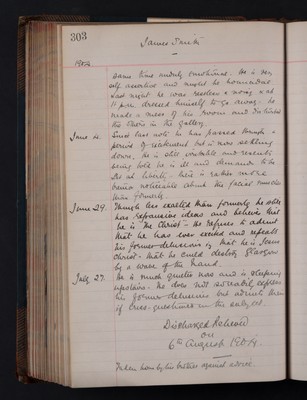 303
James Smith
1904
same time unduly emotional. He is very
self assertive and might be homicidal.
Last night he was restless & noisy & at
11 p.m. dressed himself to go away. He
made a mess of his room and disturbed
the others in the gallery.
June 4. Since last note he has passed through a
period of excitement but is now settling
down. He is still irritable and resents
being told he is ill and demands to be
set at liberty. There is rather more
tremor noticeable about the facial muscles
than formerly.
June 29. Though less exalted than formerly he still
has expansive ideas and believes that
he is the Christ. He refuses to admit
that he has ever excited and repeats
his former delusions that he is Jesus
Christ - that he could destroy Glasgow
by a wave of the hand.
July 27. He is much quieter now and is sleeping
upstairs. He does not so readily express
his former delusions but admits them
if cross-questioned on the subject.
Discharged Relieved
on
6th August 1904.
Taken home by his brother against advice.